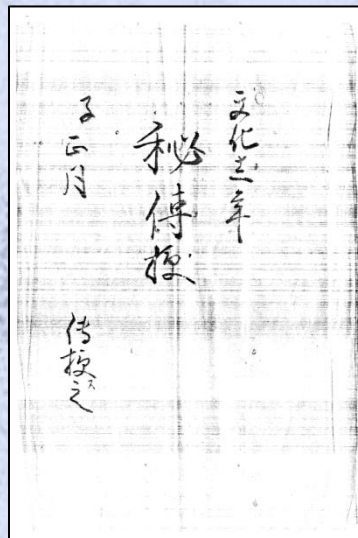 文化十三年
秘傳授
子正月
傳授ス之